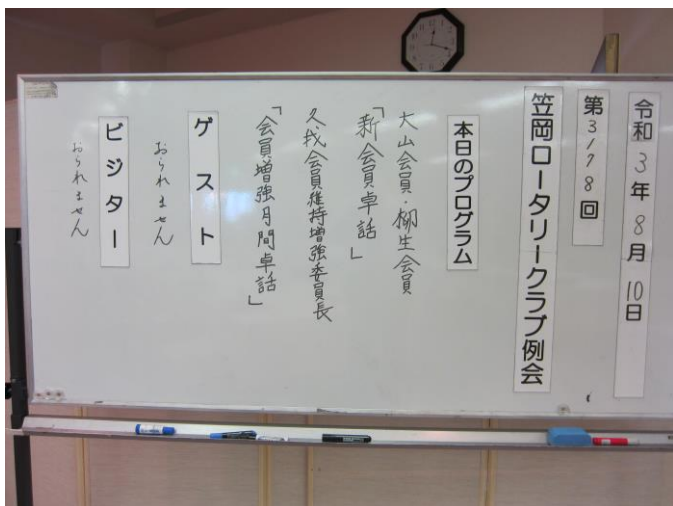 令和3年8月10日
第3178回
笠岡ロータリークラブ例会
本日のプログラム
大山会員・柳生会員
「新会員卓話」
久我会員維持増強委員長
「会員増強月間卓話」
ゲスト
おられません
ビジター
おられません